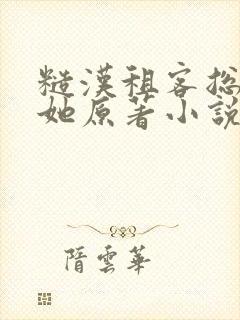 糙漢租客总
她原著小說
隋雲華